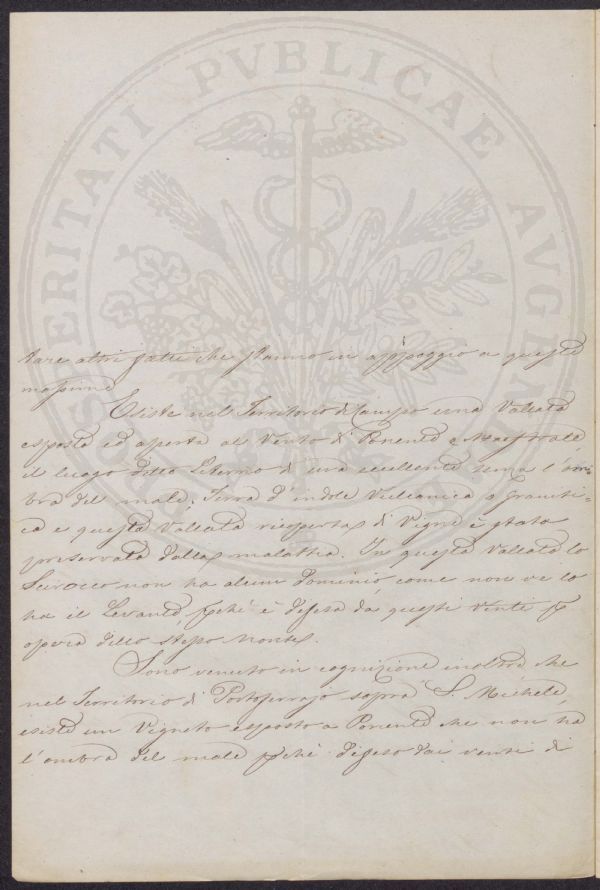 PROSPERITATI PVBLICAE AVGENDAE
tare altri fatti che stanno in appoggio a queste
massime.
Esiste nel Territorio di Campo una Vallata
esposta ed aperta al Vento di Ponente e Maestrale,
il luogo detto Literno di uva eccellente senza l'om=
bra del male; Terra d'indole Vulcanica o Graniti=
ca e questa Vallata ricoperta di Vigne è stata
preservata dalla malattia. In questa Vallata lo
Scirocco non ha alcun dominio, come non ve lo
ha il Levante, pché è difesa da questi venti p
opera dello stesso Monte.
Sono venuto in cognizione inoltre che
nel Territorio di Portoferrajo sopra S. Michele,
esiste un Vigneto esposto a Ponente che non ha
l'ombra del male pché difeso dai venti di